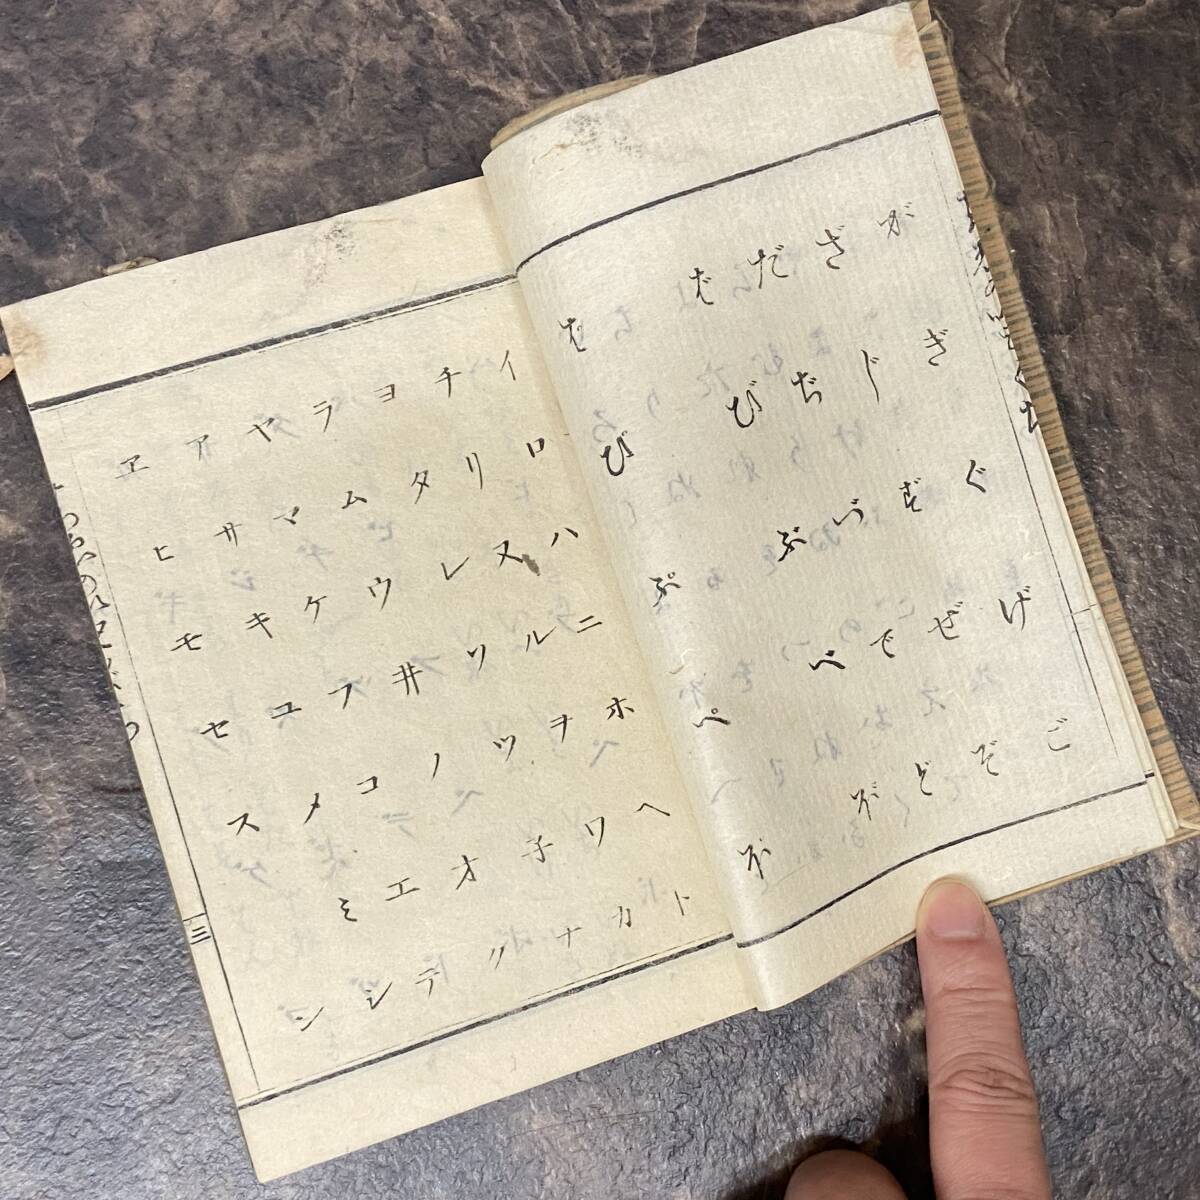 がぎぐげご
ざじずぜぞ
だぢづでど
ばびぶべぼ
ぱぴぷぺぽ
イロハニホヘト
チリヌルヲワカ
ヨタレソツ子ナ
ラムウ井ノオク
ヤマケフコエテ
アサキユメミシ
ヱヒモセスン
三